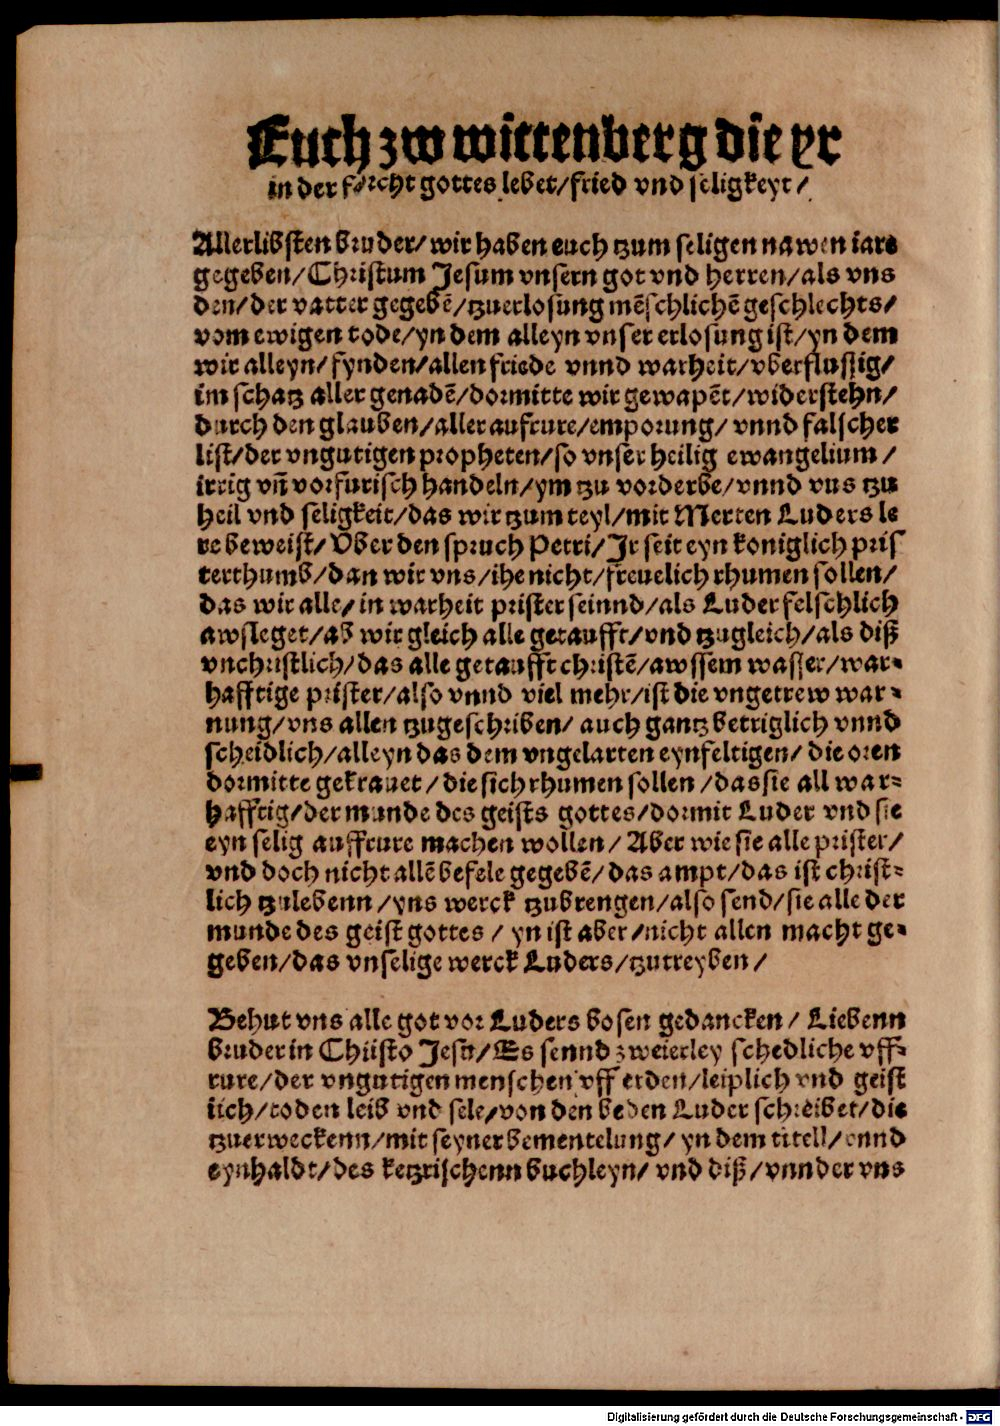 Euch zw wittenberg die yr
in der forcht gottes lebet/fried vnd seligkeyt/
Allerlibsten bruder/wir haben euch tzum seligen nawen iare
gegeben/Christum Jesum vnsern got vnd herren/als vns
den/der vatter gegebē/tzuerlosung mēschlichē geschlechts/
vom ewigen tode/yn dem alleyn vnser erlosung ist/yn dem
wir alleyn/fynden/allen friede vnnd warheit/vberflussig/
im schatz aller genadē/dormitte wir gewapēt/widerstehn/
durch den glauben/aller aufrure/emporung/vnnd falscher
list/der vngutigen propheten/so vnser heilig ewangelium/
irrig vñ vorfurisch handeln/ym tzu vorderbe/vnnd vns tzu
heil vnd seligkeit/das wir tzum teyl/mit Merten Luders le
re beweist/Vber den spruch Petri/Jr seit eyn koniglich pris
terthumb/dan wir vns/ihe nicht/freuelich rhumen sollen/
das wir alle/in warheit prister seinnd/als Luder felschlich
awsleget/ab wir gleich alle getaufft/vnd tzugleich/als diß
vnchristlich/das alle getaufft christē/awssem wasser/war-
hafftige prister/also vnnd viel mehr/ist die vngetrew war-
nung/vns allen tzugeschriben/auch gantz betriglich vnnd
scheidlich/alleyn das dem vngelarten eynfeltigen/die oren
dormitte gekrauet/die sich rhumen sollen/das sie all war-
hafftig/der munde des geists gottes/dormit Luder vnd sie
eyn selig auffrure machen wollen/Aber wie sie alle prister/
vnd doch nicht allē befele gegebē/das ampt/das ist christ-
lich tzulebenn/yns werck tzubrengen/also send/sie alle der
munde des geist gottes/yn ist aber/nicht allen macht ge-
geben/das vnselige werck Luders/tzutreyben/
Behut vns alle got vor Luders bosen gedancken/Liebenn
bruder in Christo Jesu/Es sennd zweierley schedliche vff-
rure/der vngutigen menschen vff erden/leiplich vnd geist
lich/toden leib vnd sele/von den beden Luder schreibet/die
tzuerweckenn/mit seyner bementelung/yn dem titell/vnnd
eynhaldt/des ketzrischenn buchleyn/vnd diß/vnnder vns
Digitalisierung gefördert durch die Deutsche Forschungsgemeinschaft - DFG